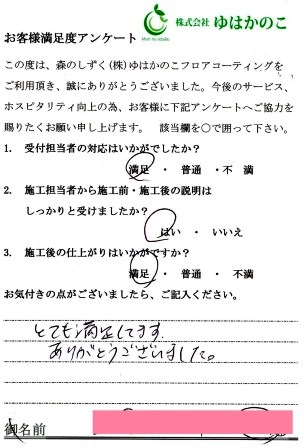 株式会社 ゆはかのこ
Mori no sizuku
お客様満足度アンケート
この度は、森のしずく(株)ゆはかのこフロアコーティングを
ご利用頂き、誠にありがとうございました。今後のサービス、
ホスピタリティ向上の為、お客様に下記アンケートへご協力を
賜りたくお願い申し上げます。 該当欄を○で囲って下さい。
1. 受付担当者の対応はいかがでしたか？
満足 ・ 普通 ・不 満
2. 施工担当者から施工前・施工後の説明は
しっかりと受けましたか？
はい ・ いいえ
3. 施工後の仕上がりはいかがですか？
満足 ・ 普通 ・ 不満
お気付きの点がございましたら、ご記入ください。
とても満足してます。
ありがとうございました。
御名前